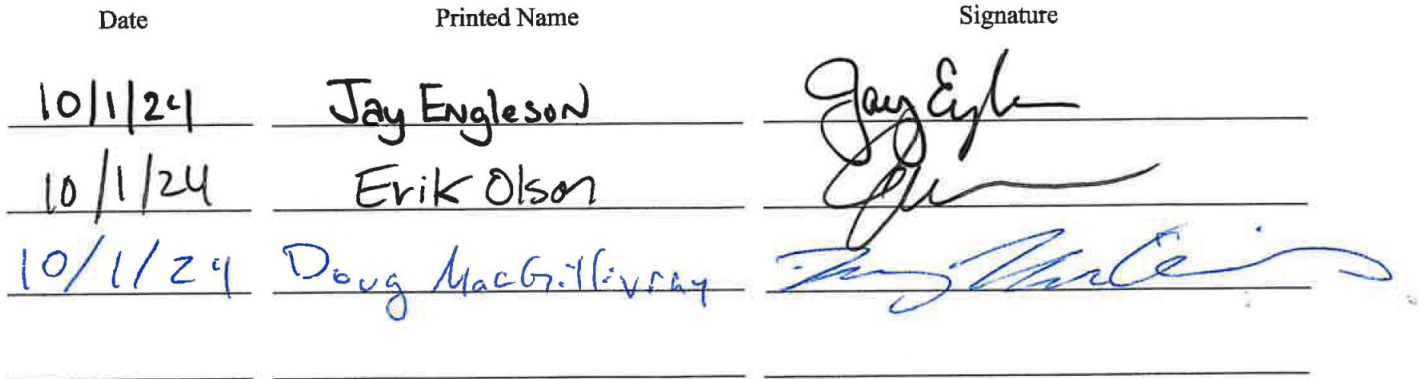 Date Printed Name Signature
10/1/24 Jay Engleson Jay Engle
10/1/24 Erik Olson
10/1/24 Doug MacGillivray